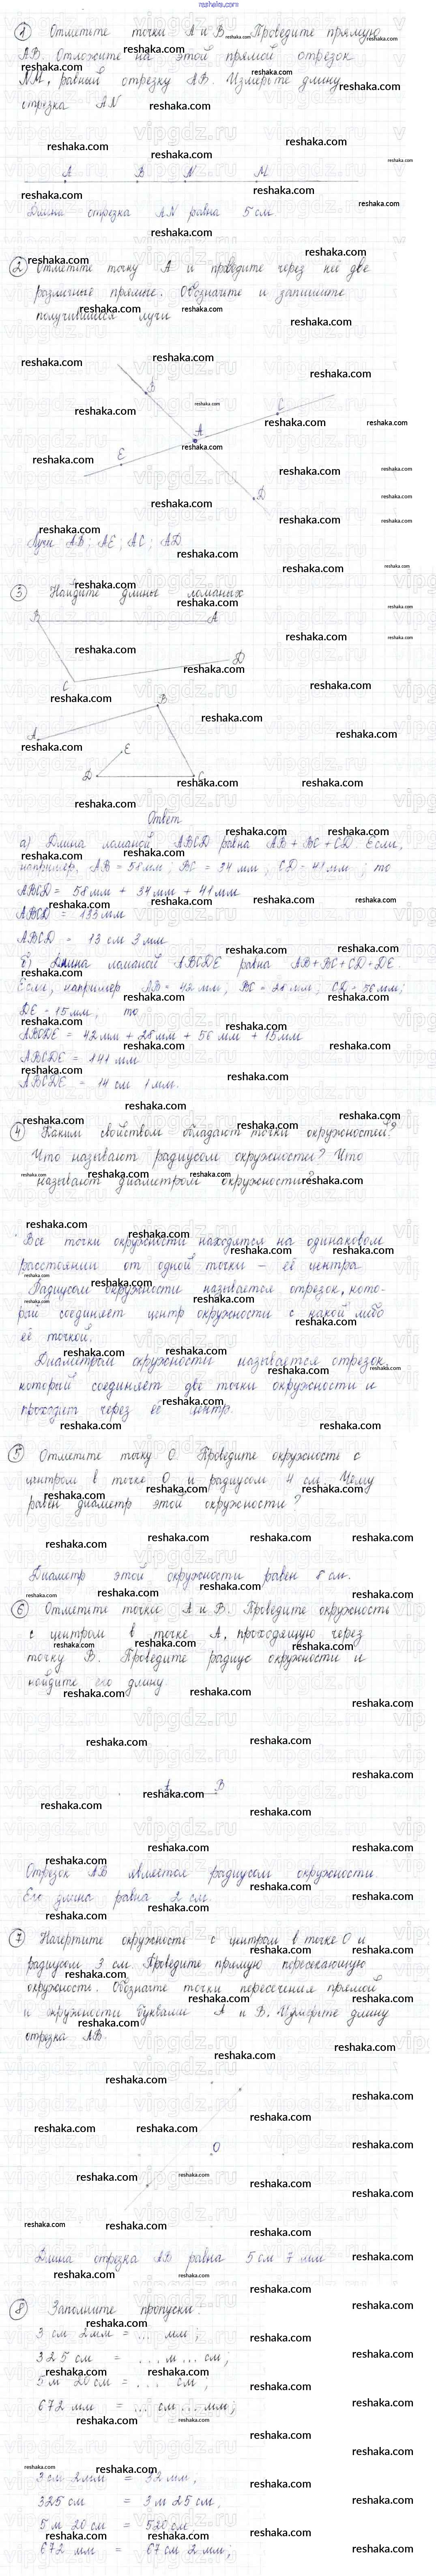 reshaka.com
1 Отметьте точки А и В. Проведите прямую
АВ. Отложите на этой прямой отрезок
NM, равный отрезку АВ. Измерьте длину
отрезка AN
A B N M
Длина отрезка AN равна 5 см
2 Отметьте точку А и проведите через неё две
различные прямые. Обозначьте и запишите
получившиеся лучи
B
C
A
E
D
Лучи АВ; АЕ; АС; АD
3 Найдите длины ломаных
B A
D
C
B
A
E
D C
Ответ
а) Длина ломаной ABCD равна AB + BC + CD. Если,
например, AB = 58 мм; BC = 34 мм; CD = 41 мм; то
ABCD = 58 мм + 34 мм + 41 мм
ABCD = 133 мм
ABCD = 13 см 3 мм
б) Длина ломаной ABCDE равна AB+BC+CD+DE.
Если, например AB = 42 мм; BC = 28 мм; CD = 56 мм;
DE = 15 мм, то
ABCDE = 42 мм + 28 мм + 56 мм + 15 мм
ABCDE = 141 мм
ABCDE = 14 см 1 мм.
4 Каким свойством обладают точки окружностей?
Что называют радиусом окружности? Что
называют диаметром окружности?
Все точки окружности находятся на одинаковом
расстоянии от одной точки – её центра
Радиусом окружности называется отрезок, кото-
рый соединяет центр окружности с какой либо
её точкой.
Диаметром окружности называется отрезок,
который соединяет две точки окружности и
проходит через её центр.
5 Отметьте точку О. Проведите окружность с
центром в точке О и радиусом 4 см. Чему
равен диаметр этой окружности?
Диаметр этой окружности равен 8 см.
6 Отметьте точки А и В. Проведите окружность
с центром в точке А, проходящую через
точку В. Проведите радиус окружности и
найдите его длину
A B
Отрезок АВ является радиусом окружности.
Его длина равна 2 см.
7 Начертите окружность с центром в точке О и
радиусом 3 см. Проведите прямую пересекающую
окружность. Обозначьте точки пересечения прямой
и окружности буквами А и В. Измерьте длину
отрезка АВ
O
Длина отрезка АВ равна 5 см 7 мм
8 Заполните пропуски:
3 см 2 мм = ... мм;
325 см = ... м ... см;
5 м 20 см = ... см;
672 мм = ... см ... мм;
3 см 2 мм = 32 мм;
325 см = 3 м 25 см;
5 м 20 см = 520 см
672 мм = 67 см 2 мм;